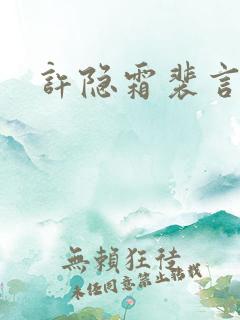 許隐霜裴言
無賴狂徒
未经同意禁止搭我